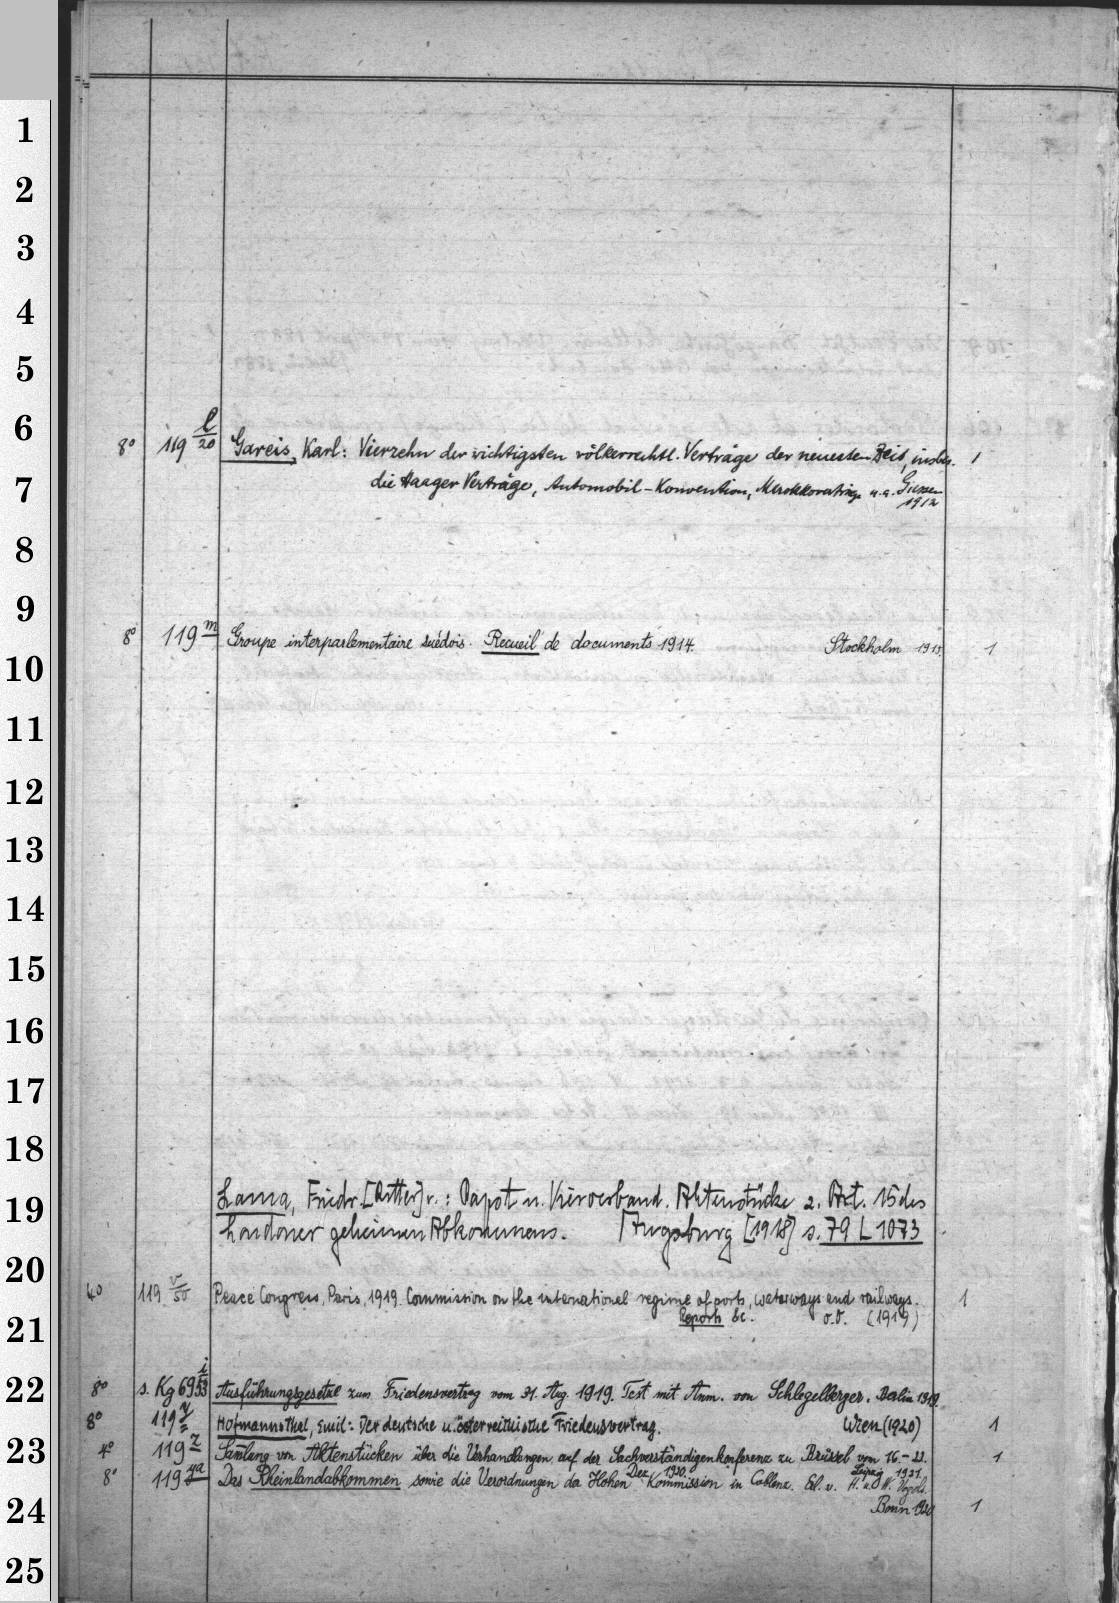 1
2
3
4
5
6
8° 119 l/20 Gareis, Karl: Vierzehn der wichtigsten völkerrechtl. Verträge der neuesten Zeit, insbes. 1
7
die Haager Verträge, Automobil-Konvention, Marokkoverträge u. a. Giessen
1912
8
9
8° 119 m Groupe interparlementaire suédois. Recueil de documents 1914. Stockholm 1915. 1
10
11
12
13
14
15
16
17
18
19
Lama, Friedr. [Ritter] v.: Papst u. Vierverband. Aktenstücke z. Art. 15 des
Londoner geheimen Abkommens. Augsburg [1918] s. 79 L 1073
20
4° 119 v/50 Peace Congress, Paris, 1919. Commission on the international regime of ports, waterways and railways. 1
Reports &c. o.O. (1919)
21
22
8° s. Kg 6953 i Ausführungsgesetze zum Friedensvertrag vom 31. Aug. 1919. Text mit Anm. von Schlegelberger. Berlin 1919.
8° 119 y Hofmannsthal, Emil: Der deutsche u. österreichische Friedensvertrag. Wien (1920) 1
23
4° 119 z Samlung von Aktenstücken über die Verhandlungen auf der Sachverständigenkonferenz zu Brüssel vom 16.-22. 1
Dez. 1920. Leipzig 1921.
8° 119 ya Das Rheinlandabkommen sowie die Verordnungen der Hohen Kommission in Coblenz. Erl. v. H. u. W. Vogels.
24
Bonn 1920 1
25